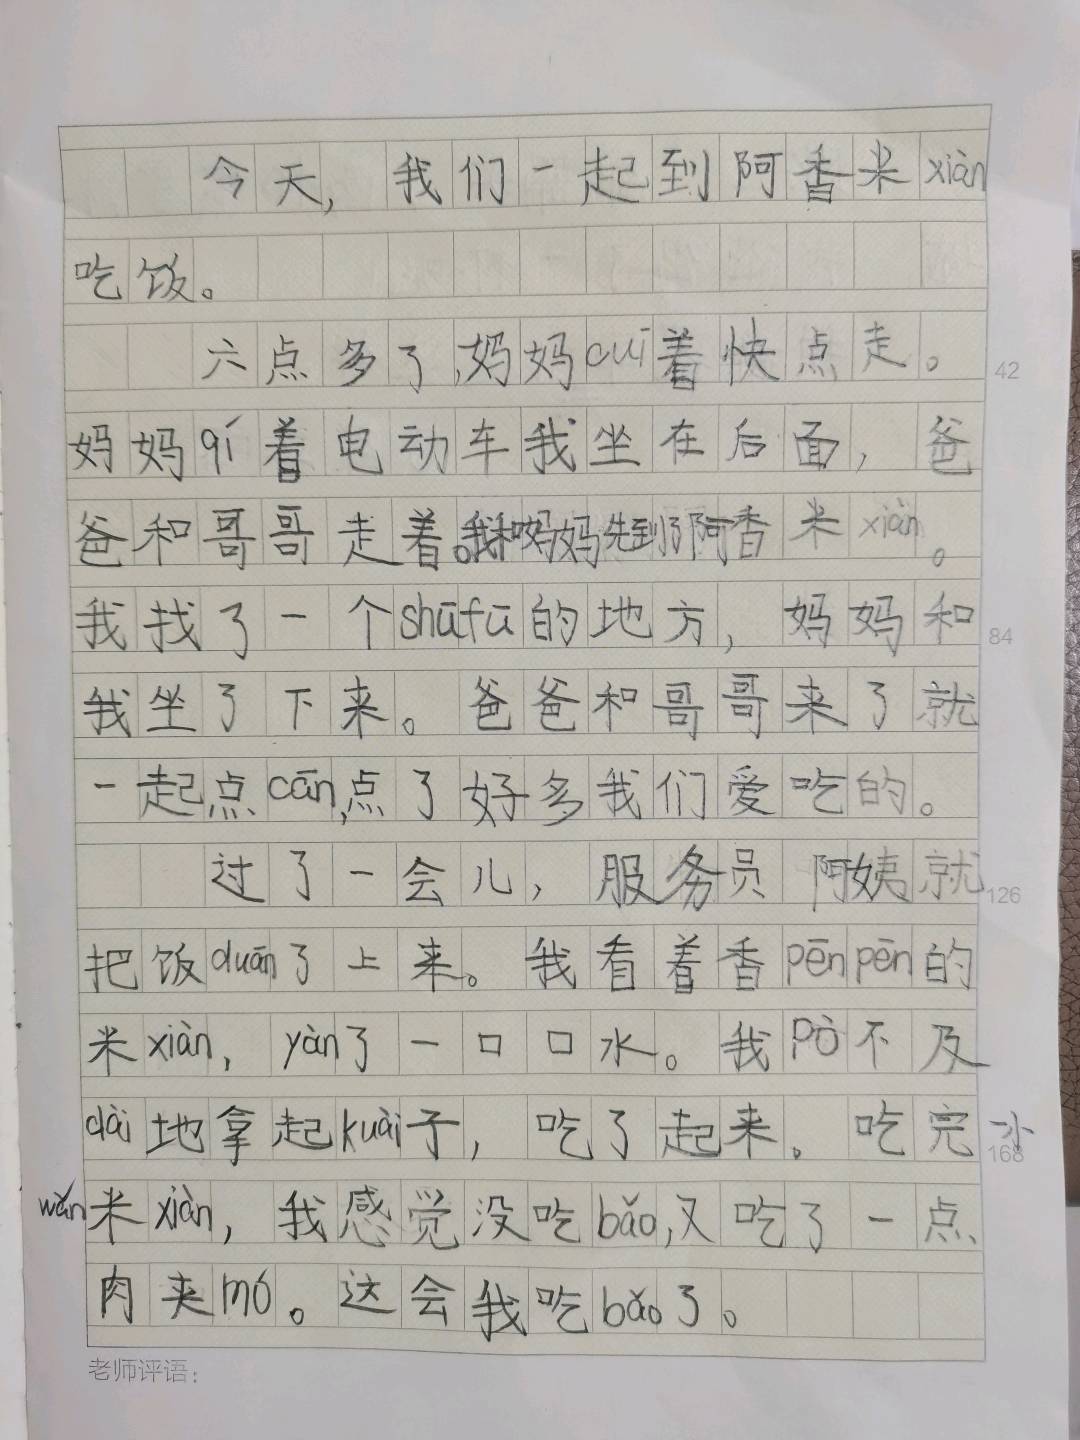 今天，我们一起到阿香米xiàn
吃饭。
六点多了，妈妈cuī着快点走。
42
妈妈qí着电动车我坐在后面，爸
爸和哥哥走着。我和妈妈先到了阿香米xiàn。
我找了一个shūfū的地方，妈妈和
84
我坐了下来。爸爸和哥哥来了就
一起点cān，点了好多我们爱吃的。
过了一会儿，服务员阿姨就
126
把饭duān了上来。我看着香pēnpēn的
米xiàn，yàn了一口口水。我pò不及
dài地拿起kuài子，吃了起来。吃完一小
168
wǎn米xiàn，我感觉没吃bǎo，又吃了一点
肉夹mó。这会我吃bǎo了。
老师评语：